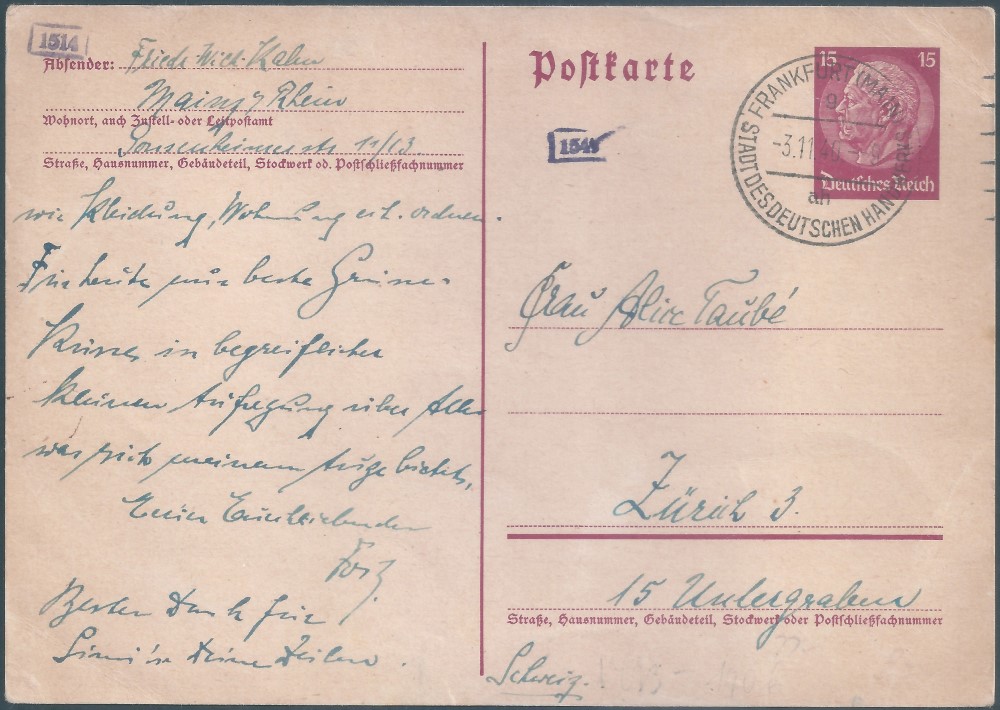 1514
Absender: Kahn
Mainz / Rhein
Wohnort, auch Zustell- oder Leitpostamt
11/13
Straße, Hausnummer, Gebäudeteil, Stockwerk od. Postschließfachnummer
wie Kleidung, Wohnung ect. ordnen.
Für heute nur beste Grüsse
Küsse in begreiflicher
kleinen Aufregung über Alles
was sich meinem Auge bietet,
Euer Euch liebender
Besten Dank für
Deine Zeilen.
Postkarte
1514
15 15
Deutsches Reich
FRANKFURT (MAIN)
9
-3.11.40
ah
STADT DES DEUTSCHEN HANDWERKS
Frau Alice Taubé
Zürich 3.
15 Untergraben
Straße, Hausnummer, Gebäudeteil, Stockwerk oder Postschließfachnummer
Schweiz.